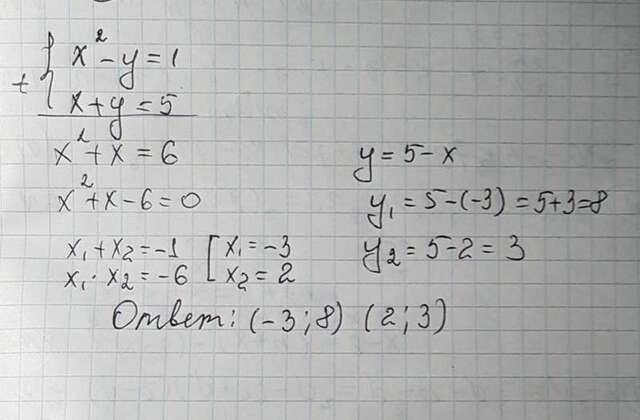 + { x² - y = 1
x + y = 5
x² + x = 6
x² + x - 6 = 0
x₁ + x₂ = -1 [ x₁ = -3
x₁ · x₂ = -6 x₂ = 2
y = 5 - x
y₁ = 5 - (-3) = 5 + 3 = 8
y₂ = 5 - 2 = 3
Ответ: (-3; 8) (2; 3)